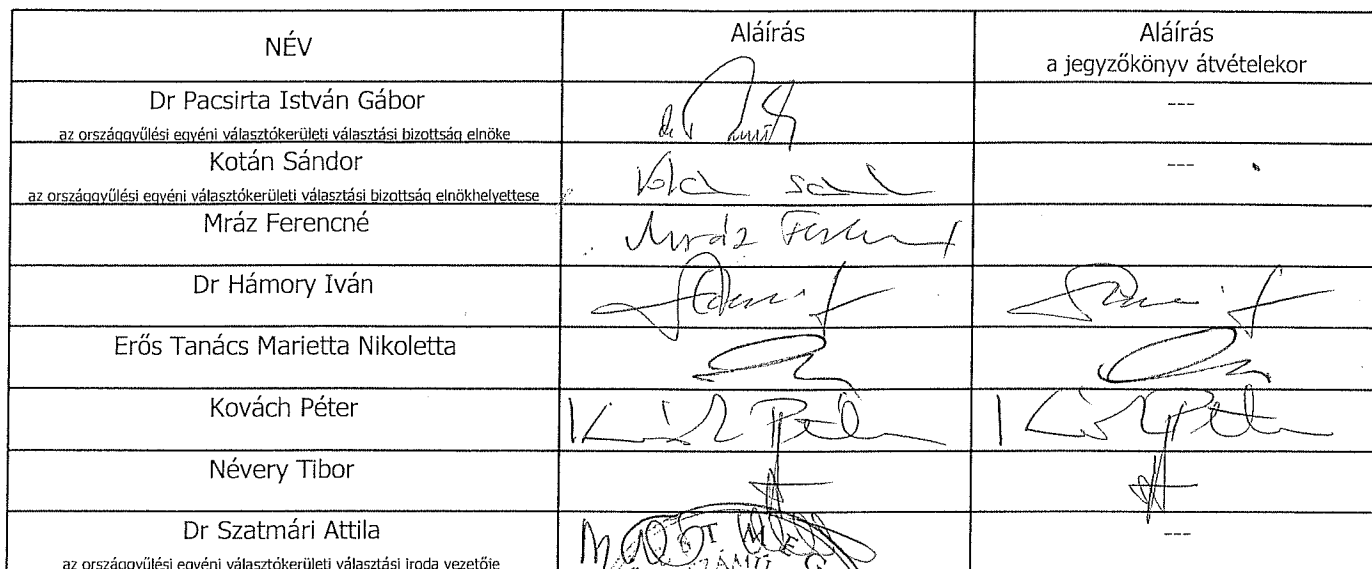 NÉV Aláírás Aláírás
a jegyzőkönyv átvételekor
Dr Pacsirta István Gábor ---
az országgyűlési egyéni választókerületi választási bizottság elnöke
Kotán Sándor ---
az országgyűlési egyéni választókerületi választási bizottság elnökhelyettese
Mráz Ferencné Mráz
Dr Hámory Iván
Erős Tanács Marietta Nikoletta
Kovách Péter
Névery Tibor
Dr Szatmári Attila ---
az országgyűlési egyéni választókerületi választási iroda vezetője